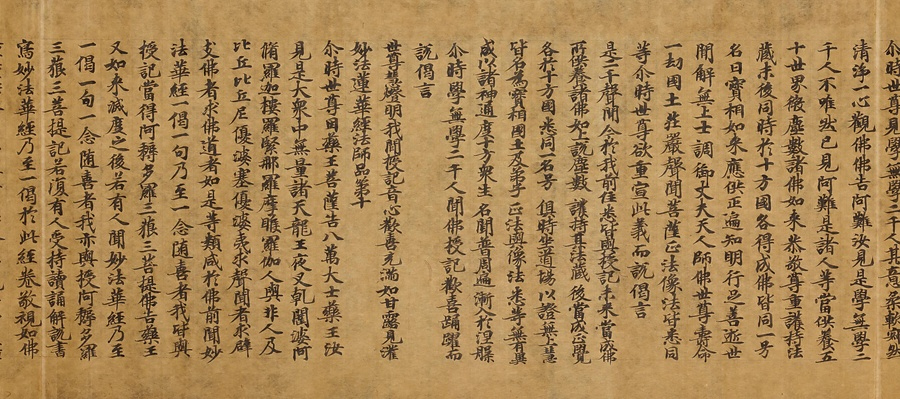 尒時世尊見學無學二千人其意柔軟寂然
清淨一心觀佛佛告阿難汝見是學無學二
千人不唯然已見阿難是諸人等當供養五
十世界微塵數諸佛如來恭敬尊重護持法
藏末後同時於十方國各得成佛皆同一号
名曰寶相如來應供正遍知明行足善逝世
間解無上士調御丈夫天人師佛世尊壽命
一劫國土莊嚴聲聞菩薩正法像法皆悉同
等尒時世尊欲重宣此義而說偈言
是二千聲聞 今於我前住 悉皆與授記 未來當成佛
所供養諸佛 如上說塵數 護持其法藏 後當成正覺
各於十方國 悉同一名字 俱時坐道場 以證無上慧
皆名為寶相 國土及弟子 正法與像法 悉等無有異
咸以諸神通 度十方衆生 名聞普周遍 漸入於涅槃
尒時學無學二千人聞佛授記歡喜踊躍而
說偈言
世尊慧燈明 我聞授記音 心歡喜充滿 如甘露見灌
妙法蓮華經法師品第十
尒時世尊因藥王菩薩告八萬大士藥王汝
見是大衆中無量諸天龍王夜叉乹闥婆阿
脩羅迦樓羅緊那羅摩睺羅伽人與非人及
比丘比丘尼優婆塞優婆夷求聲聞者求辟
支佛者求佛道者如是等類咸於佛前聞妙
法華經一偈一句乃至一念随喜者我皆與
授記當得阿耨多羅三藐三菩提佛告藥王
又如來滅度之後若有人聞妙法華經乃至
一偈一句一念随喜者我亦與授阿耨多羅
三藐三菩提記若復有人受持讀誦解說書
寫妙法華經乃至一偈於此經卷敬視如佛